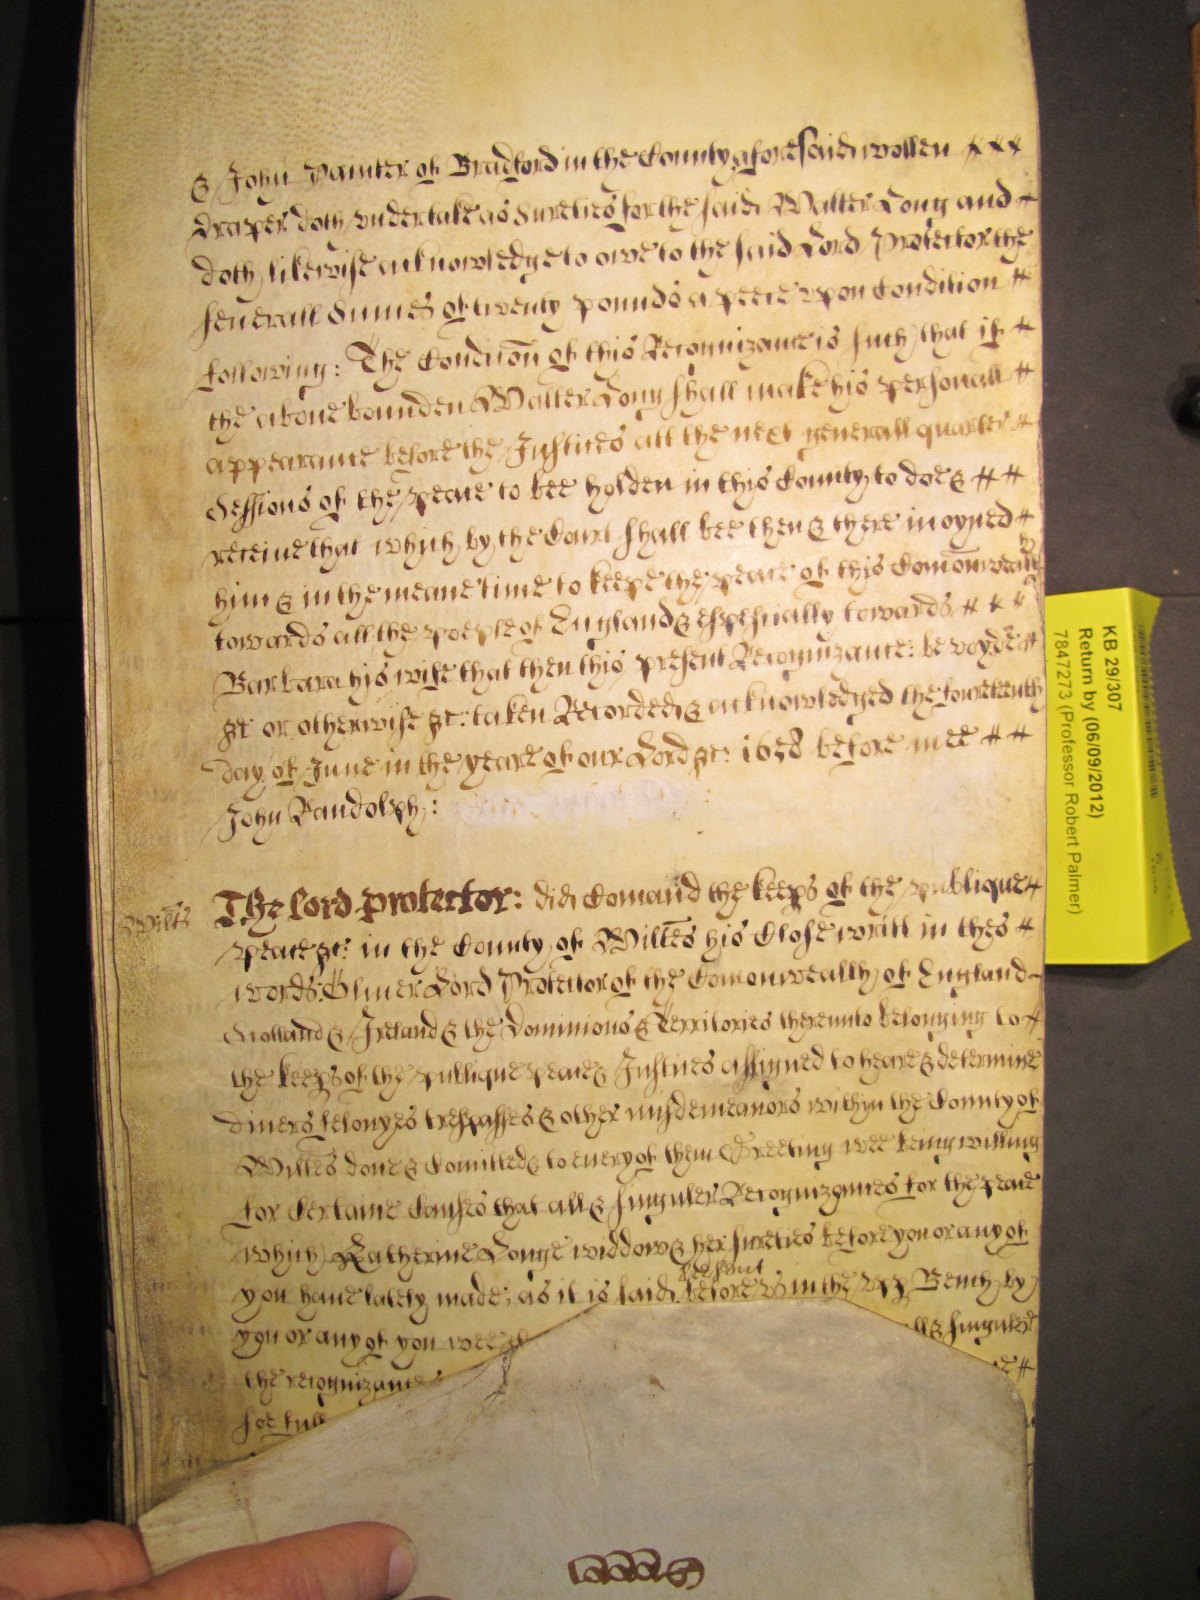 & John Painter of Bradford in the County aforesaid wollen
draper doth undertake as Sureties for the said Walter Long and
doth likewise acknowledge to owe to the said Lord Protector the
severall Sumes of twenty pounds a peece upon Condition
following: The Condicõn of this Recognizance is such that if
the above bounden Walter Long shall make his personall
appearance before the Justices att the next generall quarter
Sessions of the peace to bee holden in this County to doe &
receive that which by the Court shall bee then & there inoyned
him & in the meane time to keepe the peace of this Comõnwealth
towards all the people of England & espesiually towards
Barbara his wife that then this present Recognizance: be voyde
&c or otherwise &c: taken Recorded & acknowledged the fourteenth
day of June in the yeare of our Lord &c: 1658 before mee
John Randolph:
Wiltes
The Lord protector: did Comand the keeps of the publique
peace &c: in the County of Wiltes his Close writt in thes
words: Oliver Lord Protector of the Comonwealth of England
Scotland & Ireland & the Dominions & Territories thereunto belonging to
the keeps of the publique peace & Justices assigned to heare & determine
divers felonyes trespasses & other misdemeanors within the County of
Wiltes done & Comitted & to every of them Greeting wee being willing
for Certaine Causes that all & singuler Recognizances for the peace
which Katherine Longe widdow & her sureties before you or any of
bee sent
you have lately made; as it is said before us in the upp Bench by
you or any of you wee
ll & singuler
the recognizance
soe full
KB 29/307
Return by (06/09/2012)
7847273 (Professor Robert Palmer)